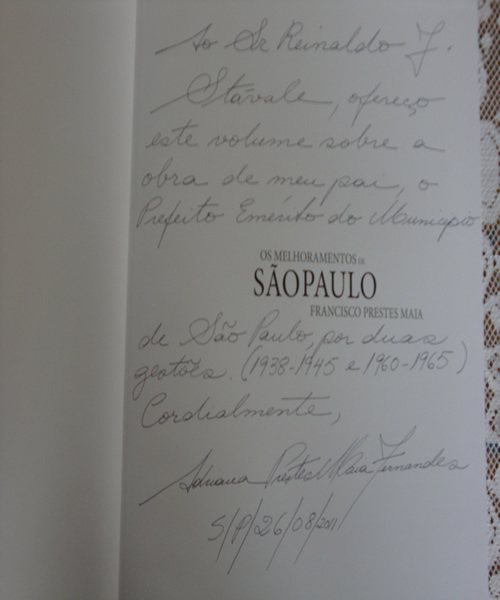 Ao Sr Reinaldo J.
Stávale, ofereço
este volume sobre a
obra de meu pai, o
Prefeito Emérito do Municipio
OS MELHORAMENTOS DE
SÃO PAULO
FRANCISCO PRESTES MAIA
de São Paulo, por duas
gestões. (1938-1945 e 1960-1965)
Cordialmente,
Adriana Prestes Maia Fernandes
S/P/26/08/2011